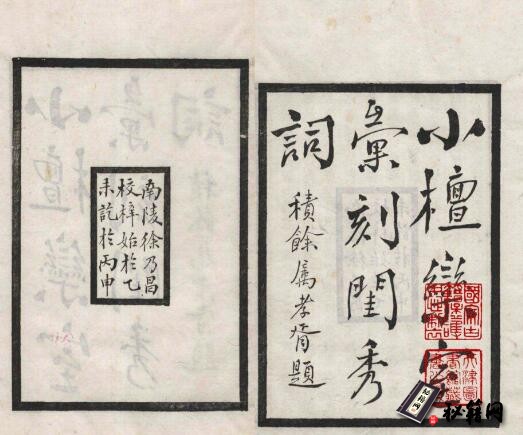 小檀欒室
彙刻閨秀
詞
積餘属孝胥題
南陵徐乃昌
校梓始於乙
未訖於丙申
秘籍网